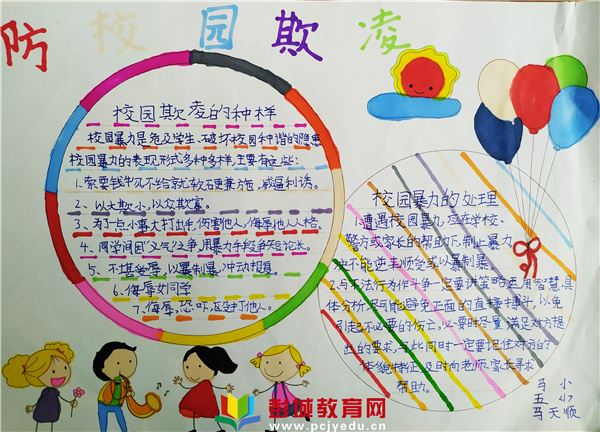 防校园欺凌
校园欺凌的种样
校园暴力是危及学生、破坏校园和谐的隐患
校园暴力的表现形式多种多样,主要有这些:
1.索要钱牛几不给就尤软石更兼方施,威逼利诱。
2、以大欺小,以众欺寡。
3、为了一点小事大打出手,伤害他人,侮辱他人人格。
4、同学间因“义气”之争,用暴力手段争短论长。
5、不堪受辱,以暴制暴,冲动报复。
6、侮辱女同学
7、侮辱,恐吓,殴打他人。
校园暴力的处理
1.遭遇校园暴力,应在学校、
警方或家长的帮助下,制止暴力
也不能逆来顺受或以暴制暴。
2.与不法行为作斗争一定要讲策略运用智慧,具
体分析,尽可能避免正面的直接搏斗,以免
引起不必要的伤亡,必要时尽量满足对方提
出的要求,与此同时一定要记住对方的
体貌特征,及时向老师、家长寻求
帮助。
马小
五小
马天顺
教育网
www.pcjyedu.cn